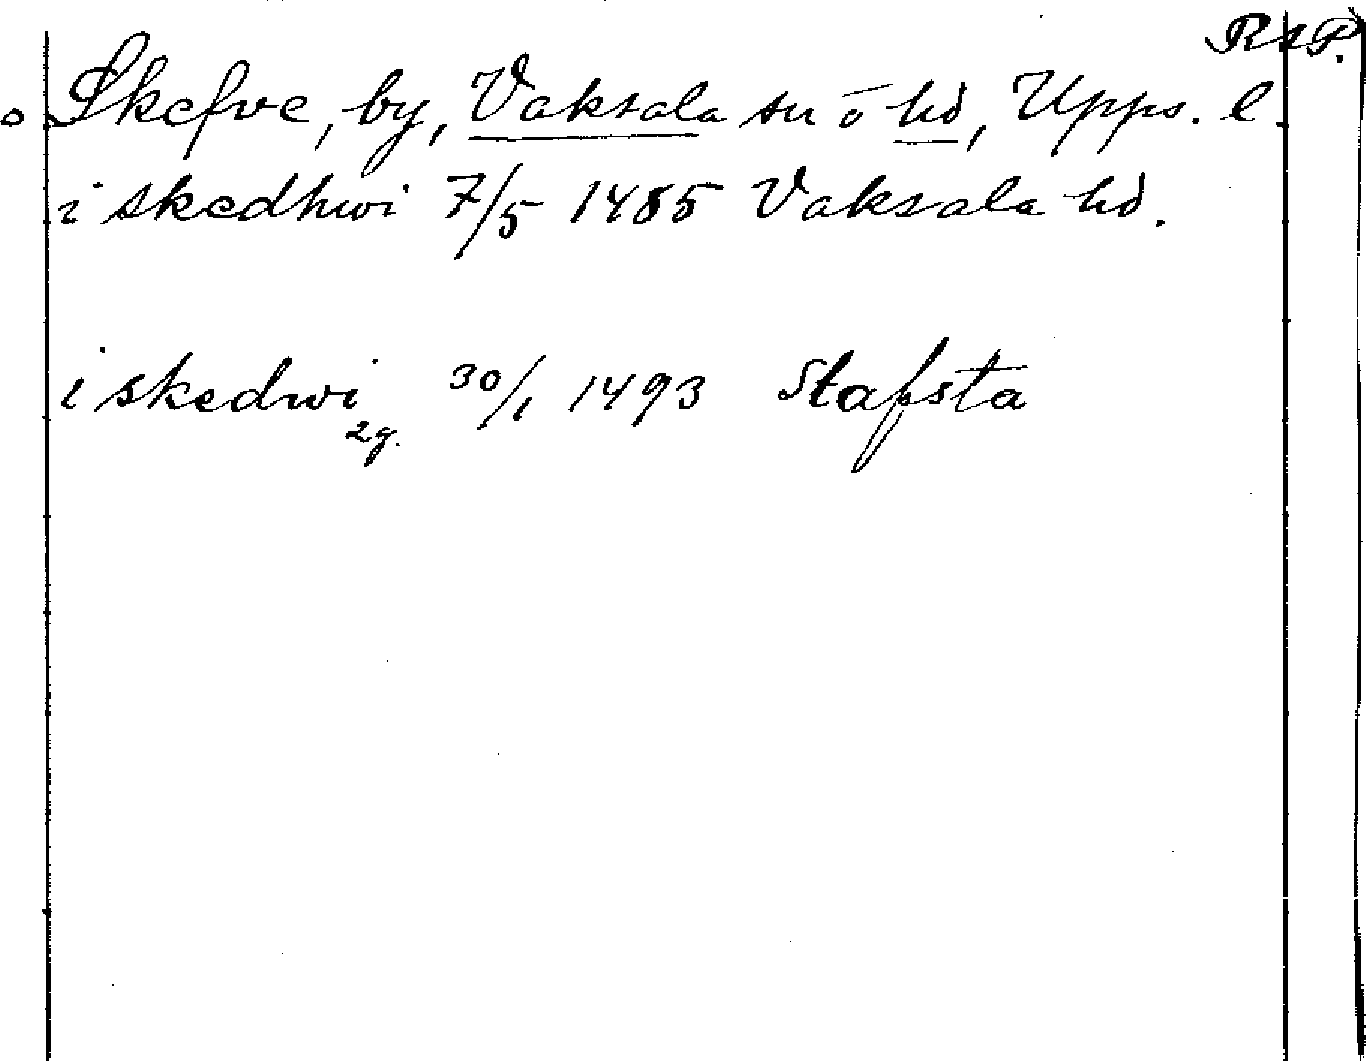 RAP.
Skefve, by, Vaksala sn o hd, Upps. l.
i skedhwi 7/5 1485 Vaksala hd.
i skedwi 30/1 1493 Stafsta
2g.